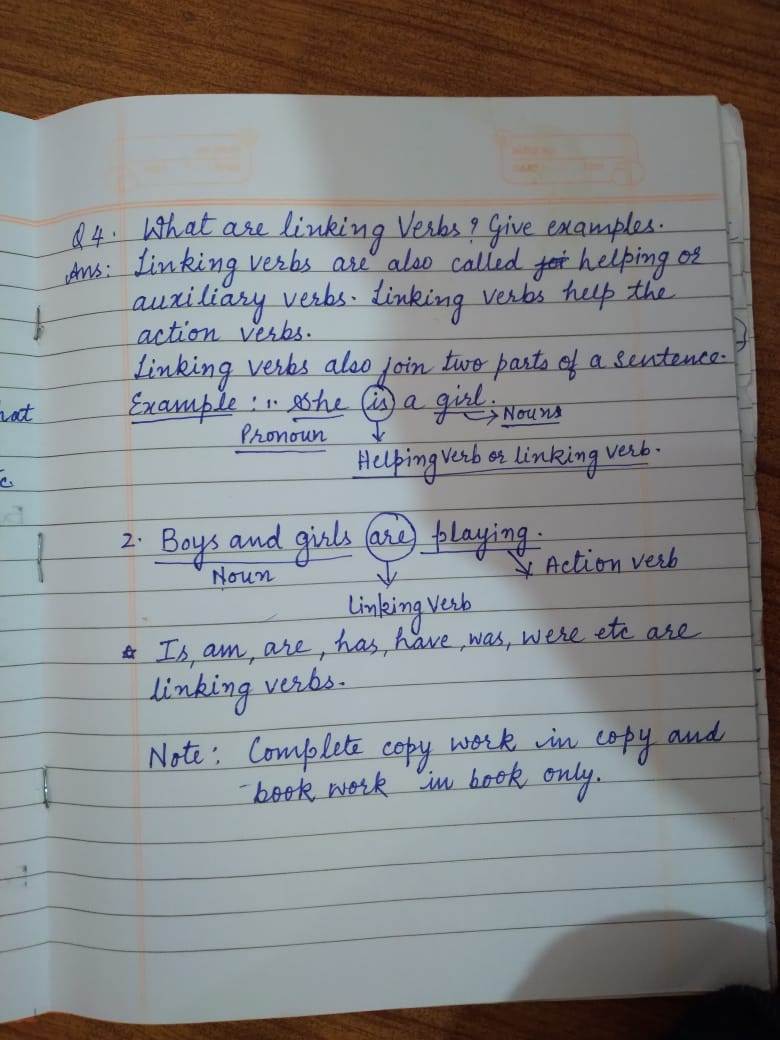 Q4. What are linking Verbs? Give examples.
Ans: Linking verbs are also called helping or
auxiliary verbs. Linking verbs help the
action verbs.
Linking verbs also join two parts of a sentence.
Example: 1. She is a girl.
Nouns
Pronoun
Helping verb or linking verb.
2. Boys and girls are playing.
Action verb
Noun
linking verb
☆ Is, am, are, has, have, was, were etc are
linking verbs.
Note: Complete copy work in copy and
book work in book only.